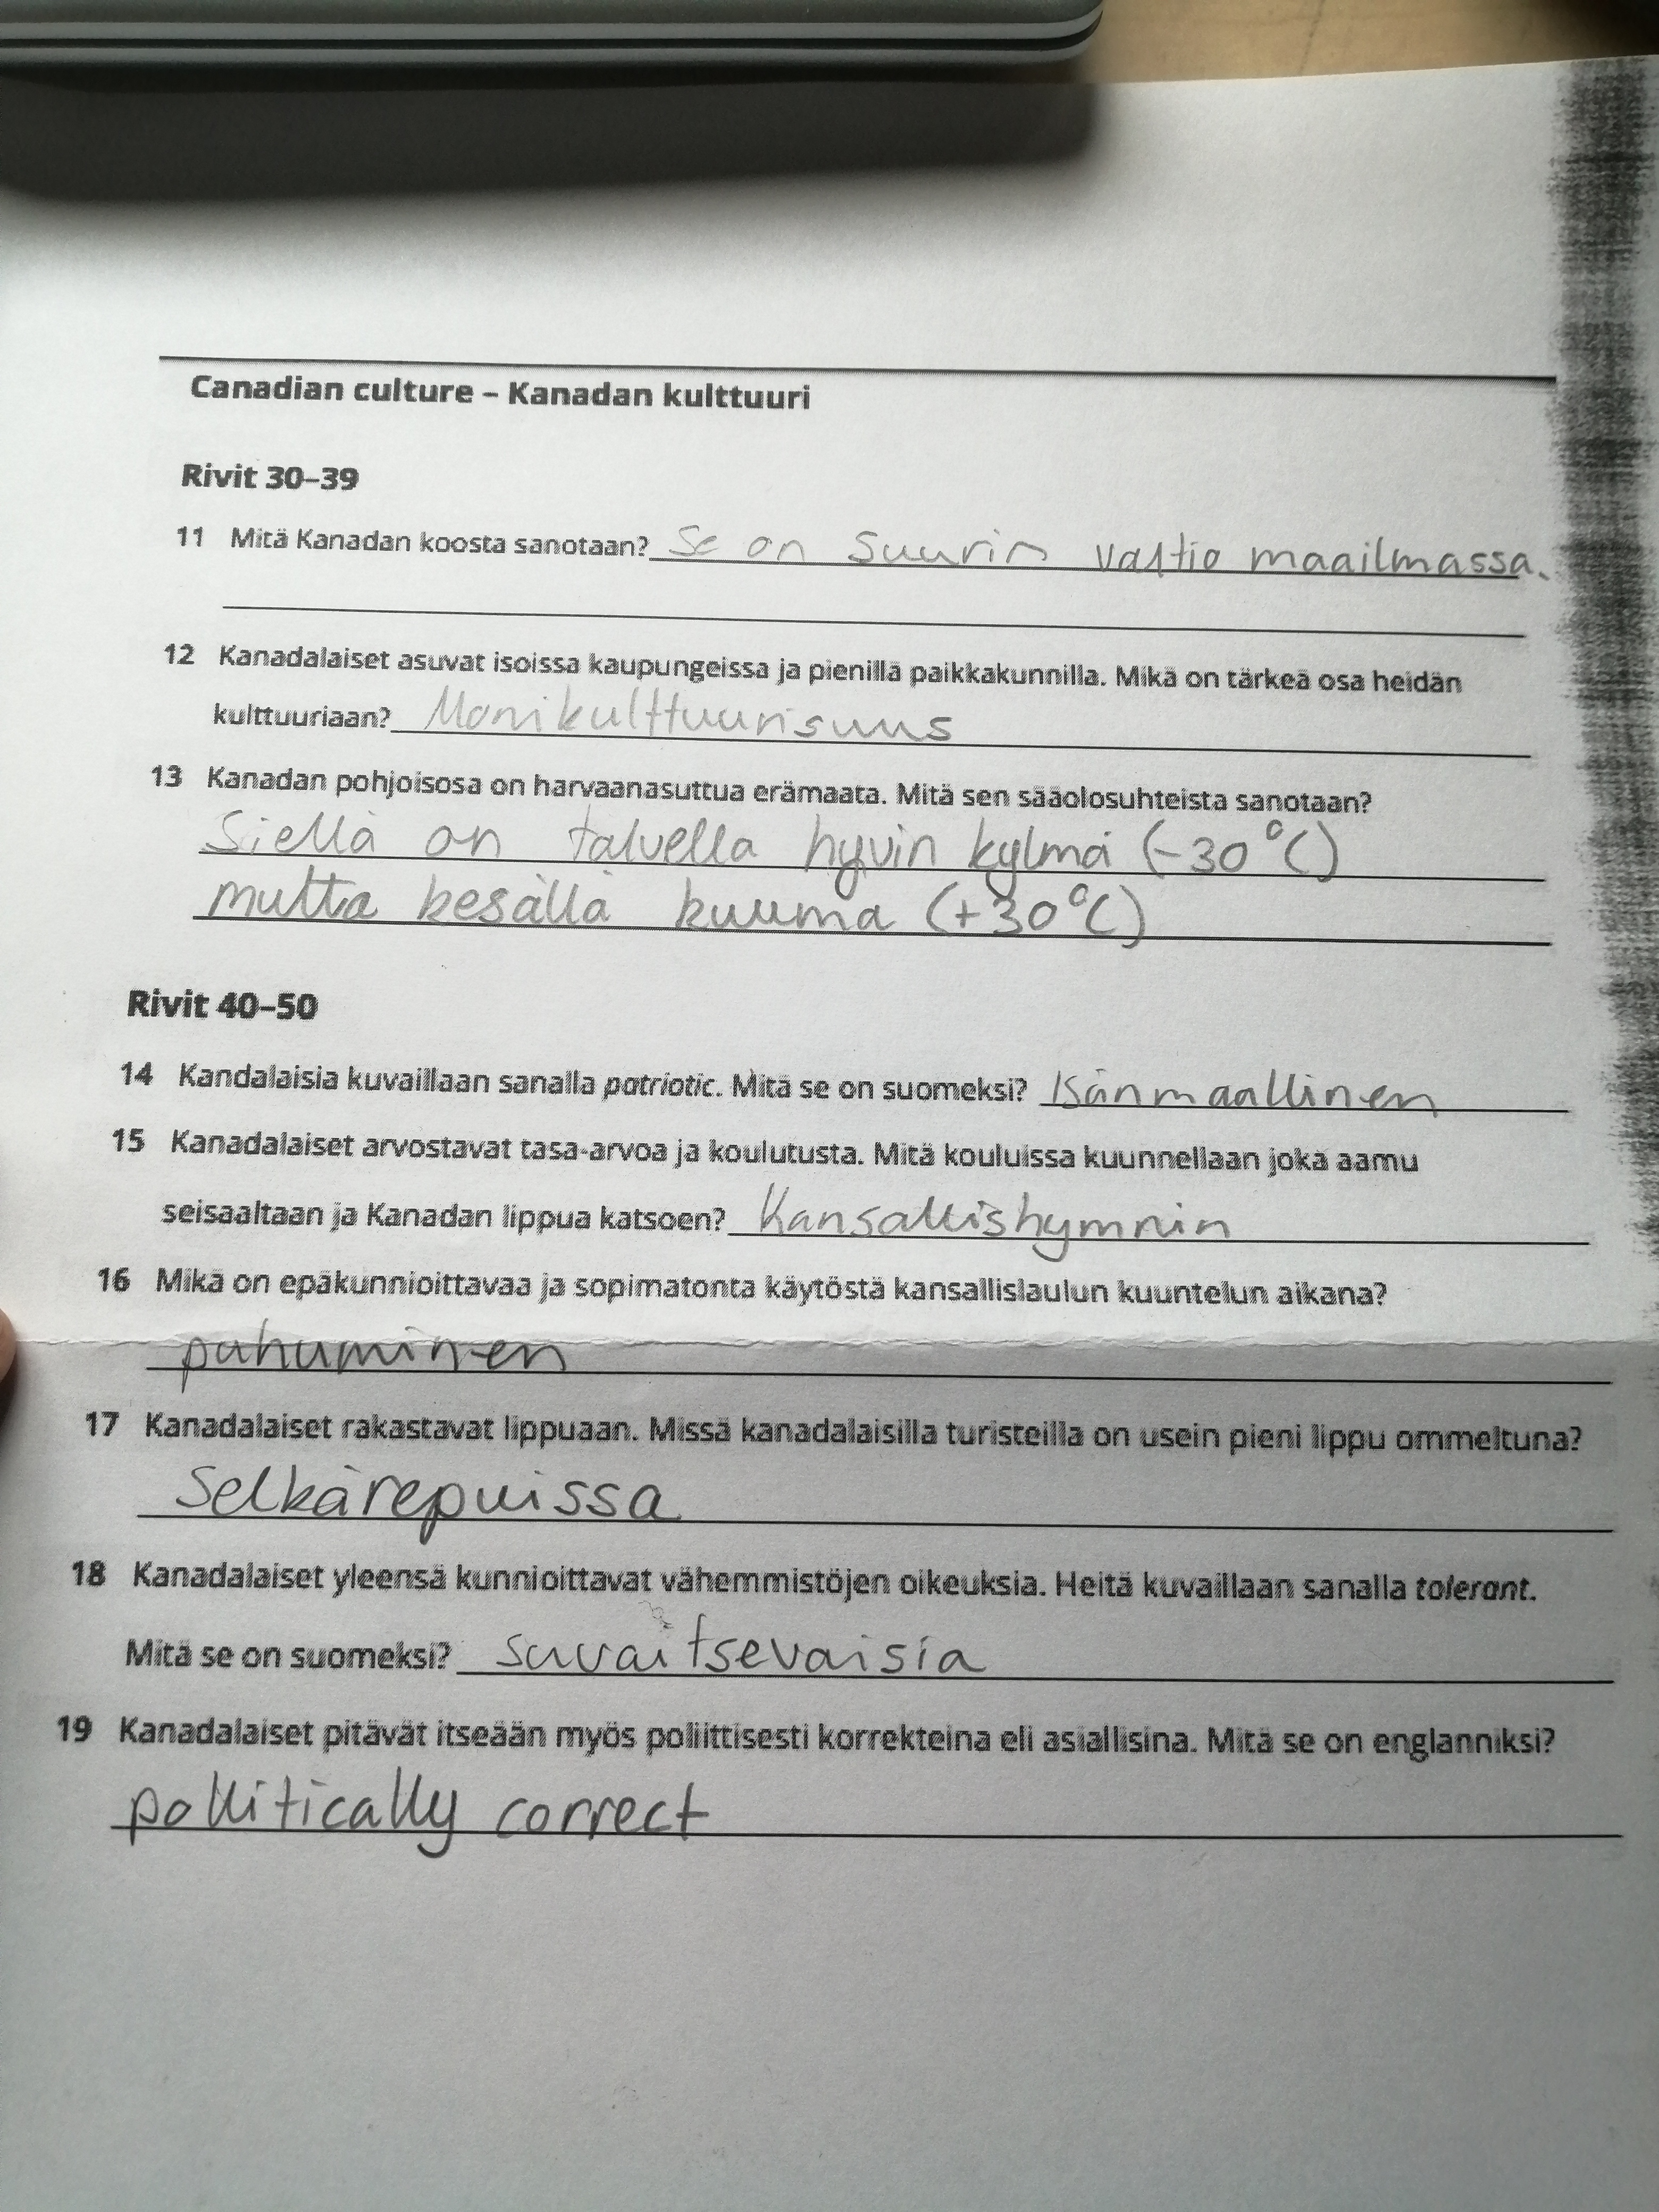 Canadian culture – Kanadan kulttuuri
Rivit 30–39
11 Mitä Kanadan koosta sanotaan? Se on suurin valtio maailmassa.
12 Kanadalaiset asuvat isoissa kaupungeissa ja pienillä paikkakunnilla. Mikä on tärkeä osa heidän
kulttuuriaan? Monikulttuurisuus
13 Kanadan pohjoisosa on harvaanasuttua erämaata. Mitä sen sääolosuhteista sanotaan?
Siellä on talvella hyvin kylmä (-30°C)
mutta kesällä kuuma (+30°C)
Rivit 40–50
14 Kandalaisia kuvaillaan sanalla patriotic. Mitä se on suomeksi? Isänmaallinen
15 Kanadalaiset arvostavat tasa-arvoa ja koulutusta. Mitä kouluissa kuunnellaan joka aamu
seisaaltaan ja Kanadan lippua katsoen? Kansallishymnin
16 Mikä on epäkunnioittavaa ja sopimatonta käytöstä kansallislaulun kuuntelun aikana?
puhuminen
17 Kanadalaiset rakastavat lippuaan. Missä kanadalaisilla turisteilla on usein pieni lippu ommeltuna?
Selkärepuissa
18 Kanadalaiset yleensä kunnioittavat vähemmistöjen oikeuksia. Heitä kuvaillaan sanalla tolerant.
Mitä se on suomeksi? suvaitsevaisia
19 Kanadalaiset pitävät itseään myös poliittisesti korrekteina eli asiallisina. Mitä se on englanniksi?
pollitically correct